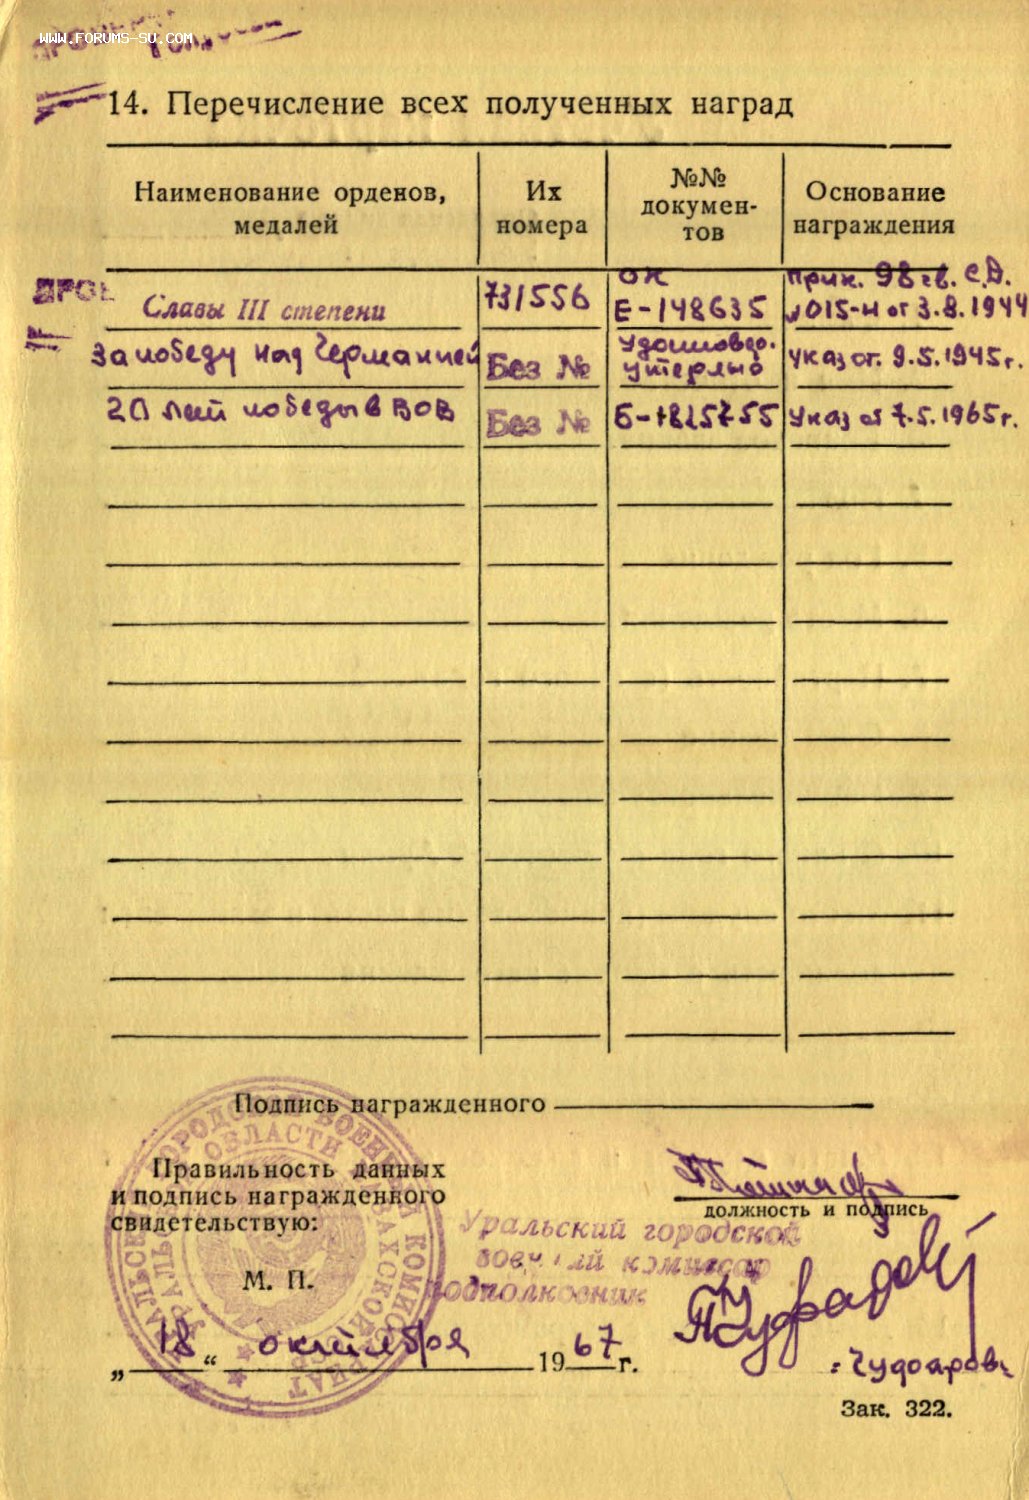 WWW.FORUMS-SU.COM
14. Перечисление всех полученных наград
Наименование орденов, медалей
Их номера
№№ докумен-тов
Основание награждения
Славы III степени 731556 ОК Е-148635 прик. 98 гв. с.д. №015-н от 3.8.1944
За победу над Германией Без № Удостовер. утеряно указ от 9.5.1945 г.
20 лет победы в ВОВ Без № Указ от 7.5.1965 г.
Подпись награжденного
Правильность данных
и подпись награжденного
свидетельствую:
должность и подпись
Уральский городской
военный комиссар
подполковник
М. П.
„18“ октября 1967 г.
Зак. 322.